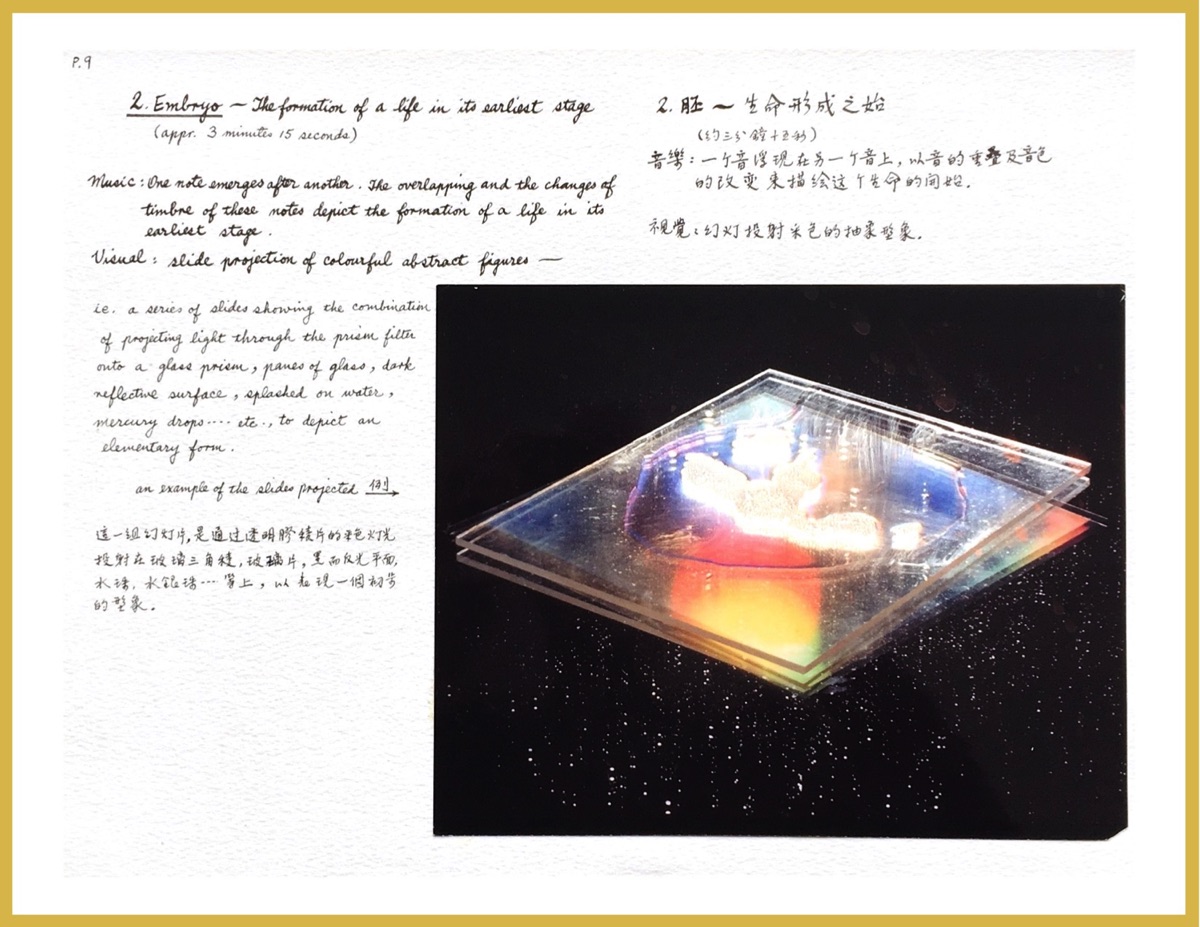 P.9
2. Embryo — The formation of a life in its earliest stage
(appr. 3 minutes 15 seconds)
Music: One note emerges after another. The overlapping and the changes of
timbre of these notes depict the formation of a life in its
earliest stage.
Visual: slide projection of colourful abstract figures —
i.e. a series of slides showing the combination
of projecting light through the prism filter
onto a glass prism, panes of glass, dark
reflective surface, splashed on water,
mercury drops···· etc., to depict an
elementary form.
an example of the slides projected 例
這一组幻灯片,是通过透明膠 片的彩色灯光
投射在玻璃三角稜,玻璃片,黑而反光平面,
水珠,水銀珠···等上,以表現一個初步
的型象.
2. 胚 — 生命形成之始
(约三分鐘十五秒)
音樂:一个音浮現在另一个音上,以音的重叠及音色
的改变來描绘这个生命的開始.
視覺:幻灯投射彩色的抽象型象.